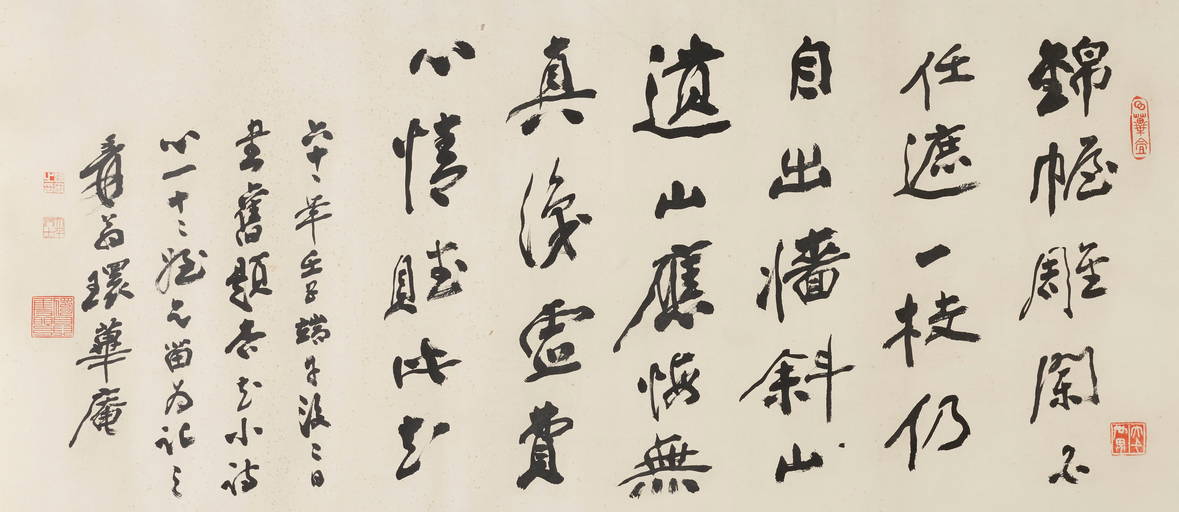 錦幄雕闌不
任遮一枝仍
自出牆斜山
遺山應悔無
真識虛費
心情賦此花
六十一年壬子端午後二日
書舊題杏花小詩
心一十二姪留為記之
爰翁環蓽庵